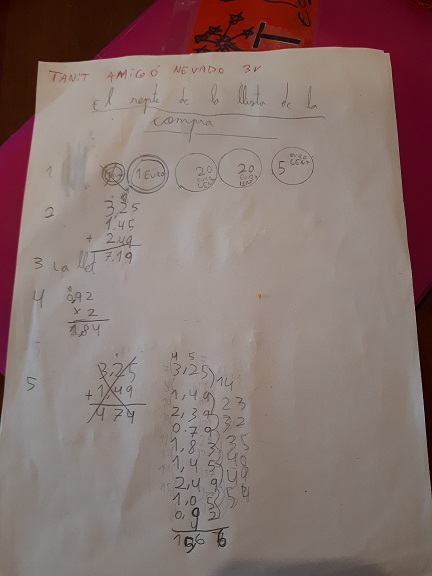 TANIT AMIGÓ NEVADO 3r
El repte de la llista de la
compra
1 1 EURO 20 EURO CENT 20 EURO CENT 5 EURO CENT
2 3,25
1,45
+ 2,49
7,19
3 La llet
4 0,92
x 2
1,84
5 3,25
+ 1,49
4 7 4
4 5
3,25
14
1,49
2,39 23
0,79 32
1,83 35
1,45
2,49
1,05 54
0,92